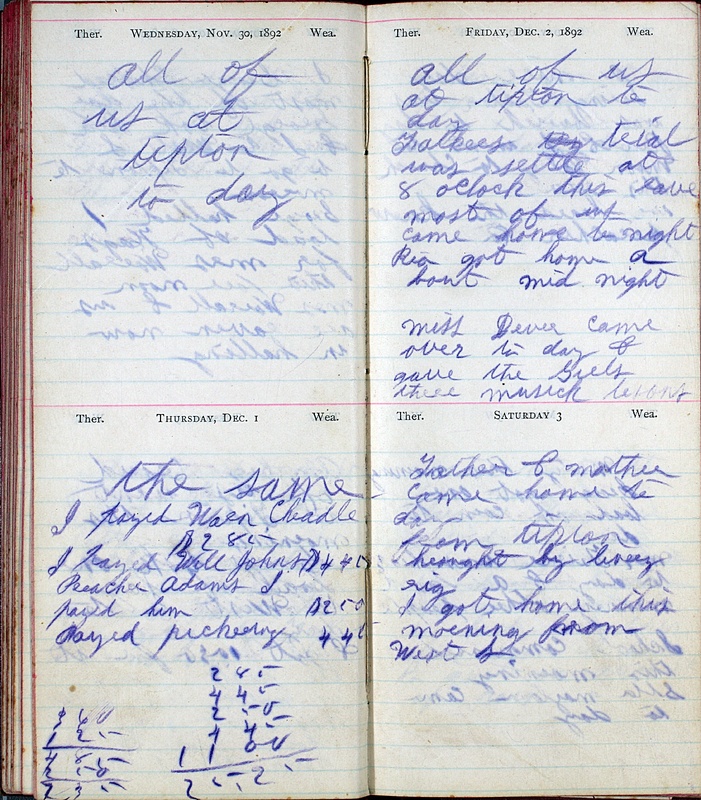 Ther. Wednesday, Nov. 30, 1892 Wea.
all of
us at
tipton
to day
Ther. Thursday, Dec. 1 Wea.
the same
I payed Waen Cradle
$2 85
I payed Will Johns $4 45
Preacher Adams I
payed him $2 50
Payed pickering 4 45
2 85
4 45
2 50
4 45
11 00
25 25
3 60
1 25
4 85
2 50
2 35
Ther. Friday, Dec. 2, 1892 Wea.
all of us
at tipton to
day
trial
was settle at
8 oClock this eave
most of us
came home to night
Rea got home a
bout mid night
miss Dever came
over to day &
gave the Girls
there musick lesons
Ther. Saturday 3 Wea.
Father & mother
came home to
day
from tipton
brought by livery
rig
I got home this
morning from
West